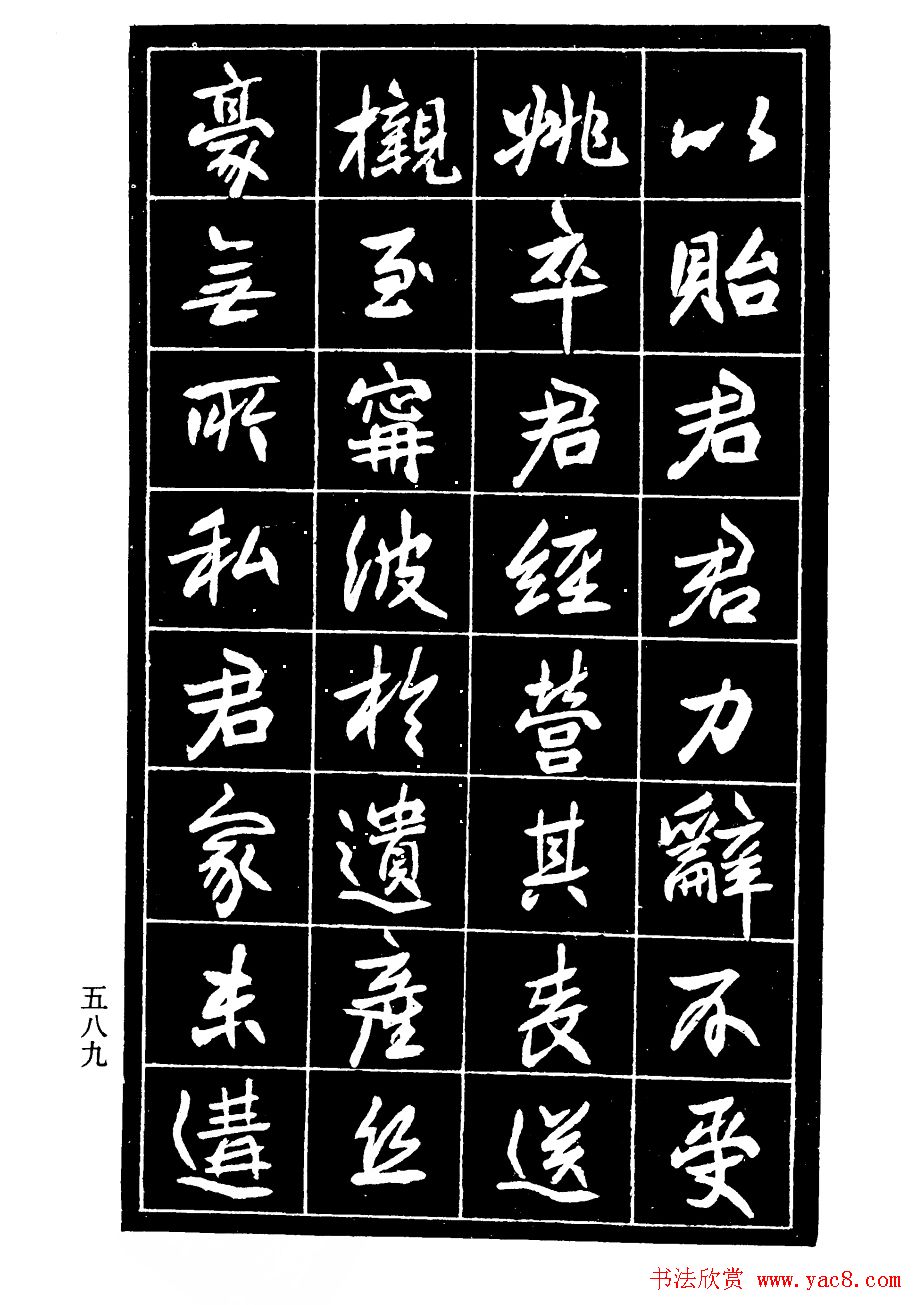 以貽君君力辭不受
姚卒君經營其喪送
櫬至寗波於遺產丝
豪無所私君家未遘
五八九
书法欣赏 www.yac8.com